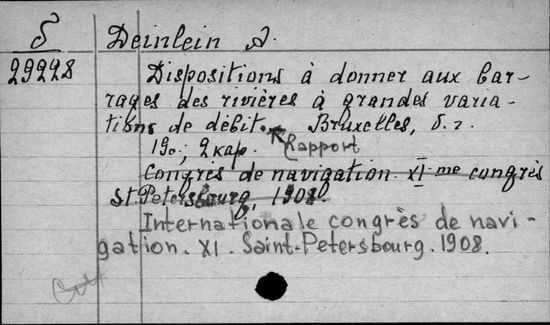 б Deinlein A.
29228 Dispositions à donner aux bar-
rages des rivières à grandes varia-
tions de débit. Bruxelles, б. г.
19с., 2 кар. Rapport
Congrès de navigation XIme congrès
St. Petersbourg, 1908.
Internationale congrès de navi-
gation. XI. Saint-Petersbourg. 1908.